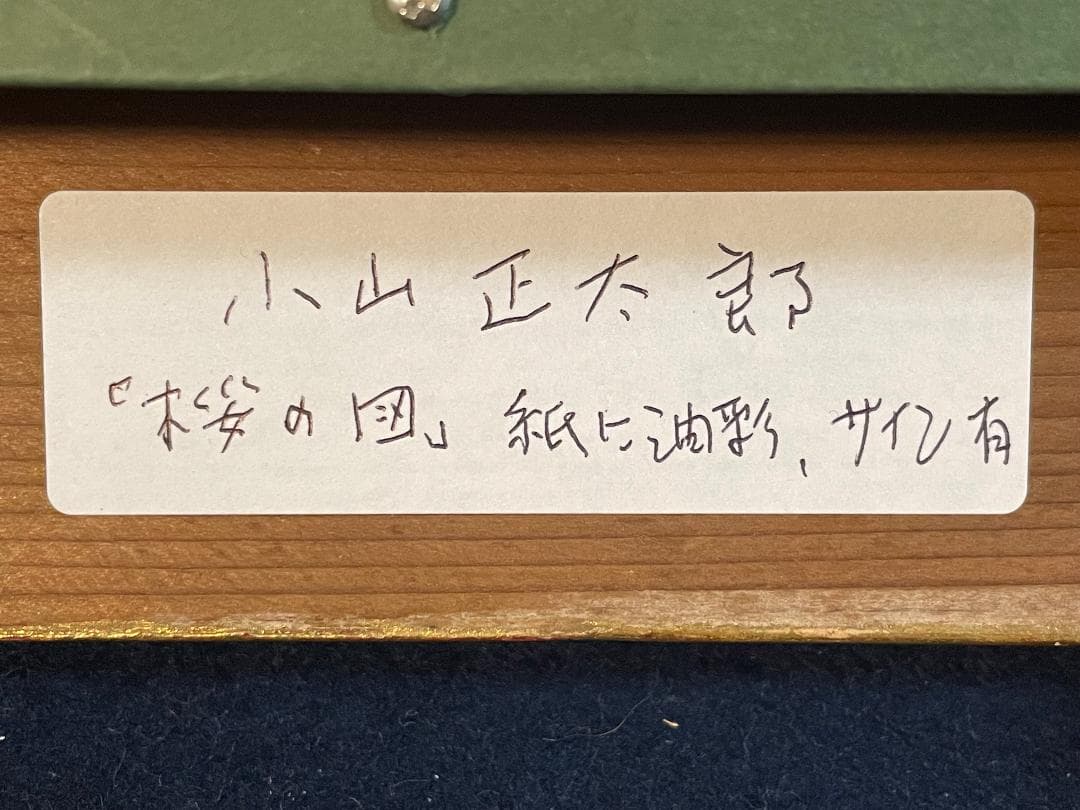 小山正太郎
『桜の図』 紙に油彩、サイン有